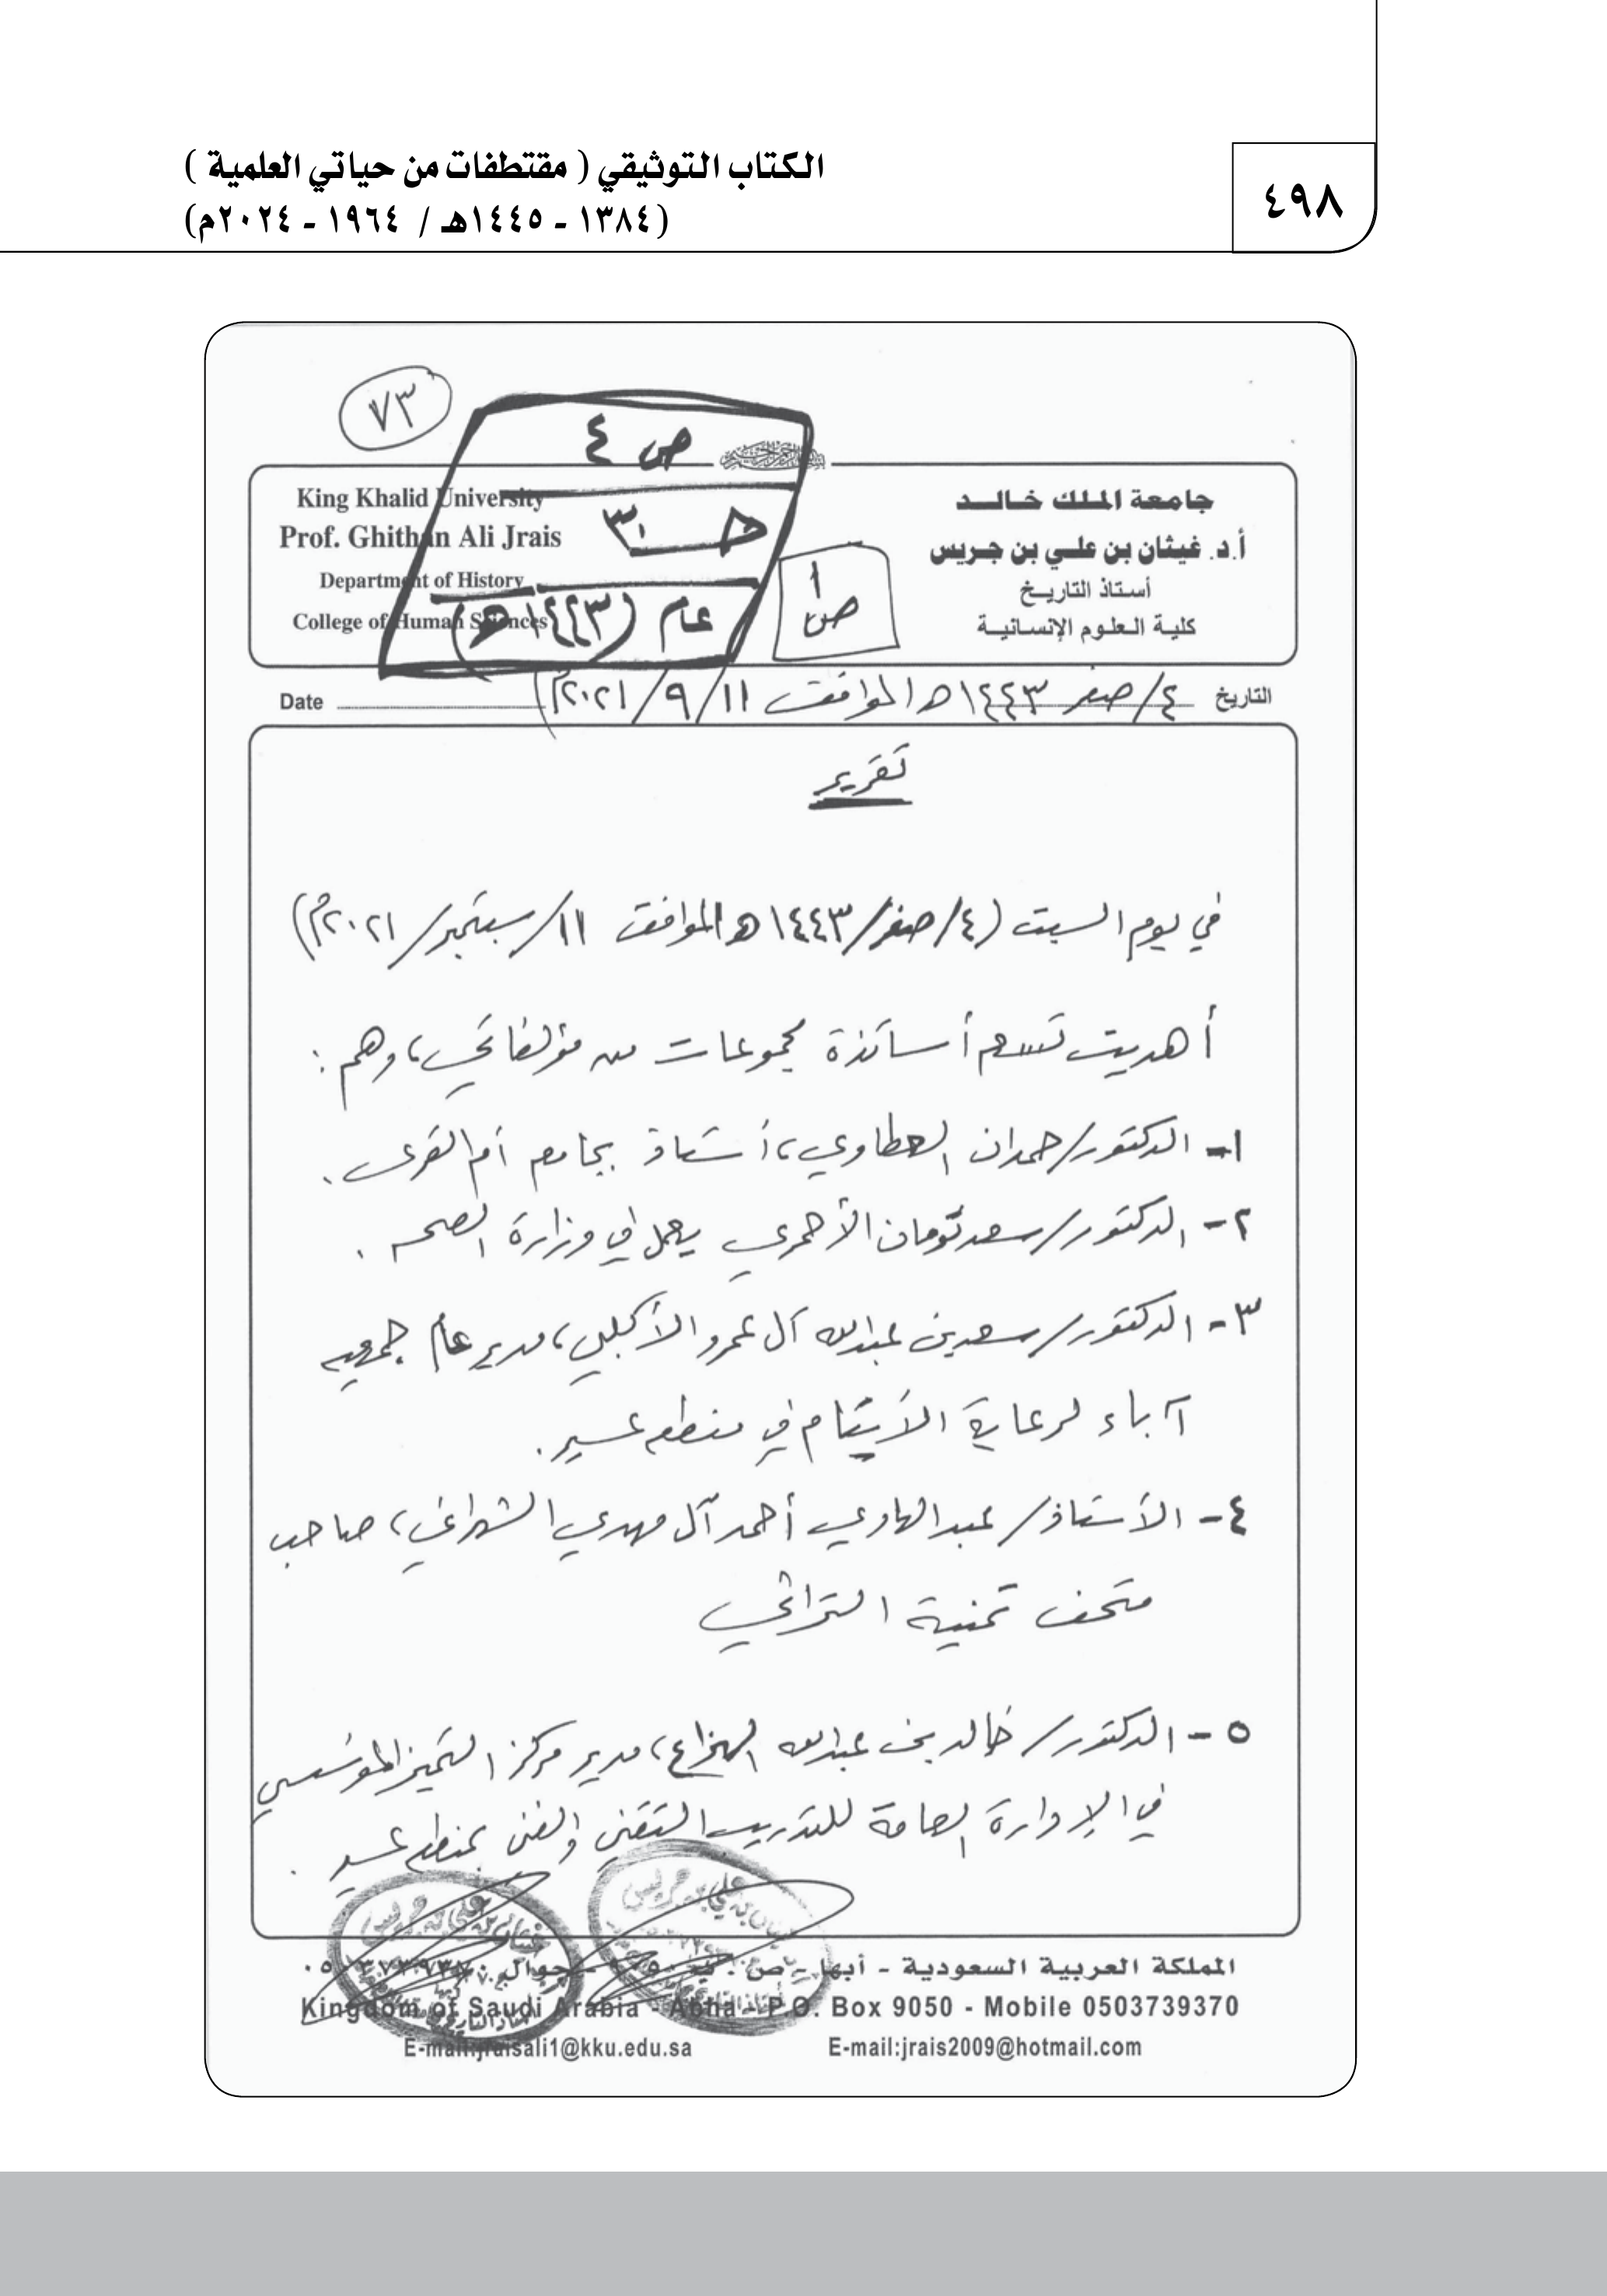 الكتاب التوثيقي ( مقتطفات من حياتي العلمية )
(١٣٨٤ - ١٤٤٥هـ / ١٩٦٤ - ٢٠٢٤م)
٤٩٨
٧٣
ص ٤
هـ ٣٠
عام (١٤٤٣هـ)
ص ١
جامعة الملك خالد
أ.د. غيثان بن علي بن جريس
أستاذ التاريخ
كلية العلوم الإنسانية
King Khalid University
Prof. Ghithan Ali Jrais
Department of History
College of Human Sciences
التاريخ ٤/صفر ١٤٤٣هـ الموافق ١١/٩/٢٠٢١م Date
تقرير
في يوم السبت (٤/صفر/١٤٤٣هـ الموافق ١١/سبتمبر/٢٠٢١م)
أهديت تسعة أساتذة مجموعات من مؤلفاتي، وهم :
١- الدكتور/حمدان العطاوي، أستاذ بجامعة أم القرى .
٢- الدكتور/سعد تومان الأحمري يعمل في وزارة الصحة .
٣- الدكتور/سعد بن عبدالله آل عمرو الأكلبي، مدير عام جمعية
آباء لرعاية الأيتام في منطقة عسير.
٤- الأستاذ/ عبدالهادي أحمد آل مهدي الشهراني، صاحب
متحف تمنية التراثي
٥- الدكتور/ خالد بن عبدالله الهزاع، مدير مركز التميز المؤسسي
في الإدارة العامة للتدريب التقني والفني بمنطقة عسير .
المملكة العربية السعودية - أبها - ص . ب ٩٠٥٠ - جوال ٠٥٠٣٧٣٩٣٧٠
Kingdom of Saudi Arabia - Abha - P.O. Box 9050 - Mobile 0503739370
E-mail:jraisali1@kku.edu.sa E-mail:jrais2009@hotmail.com